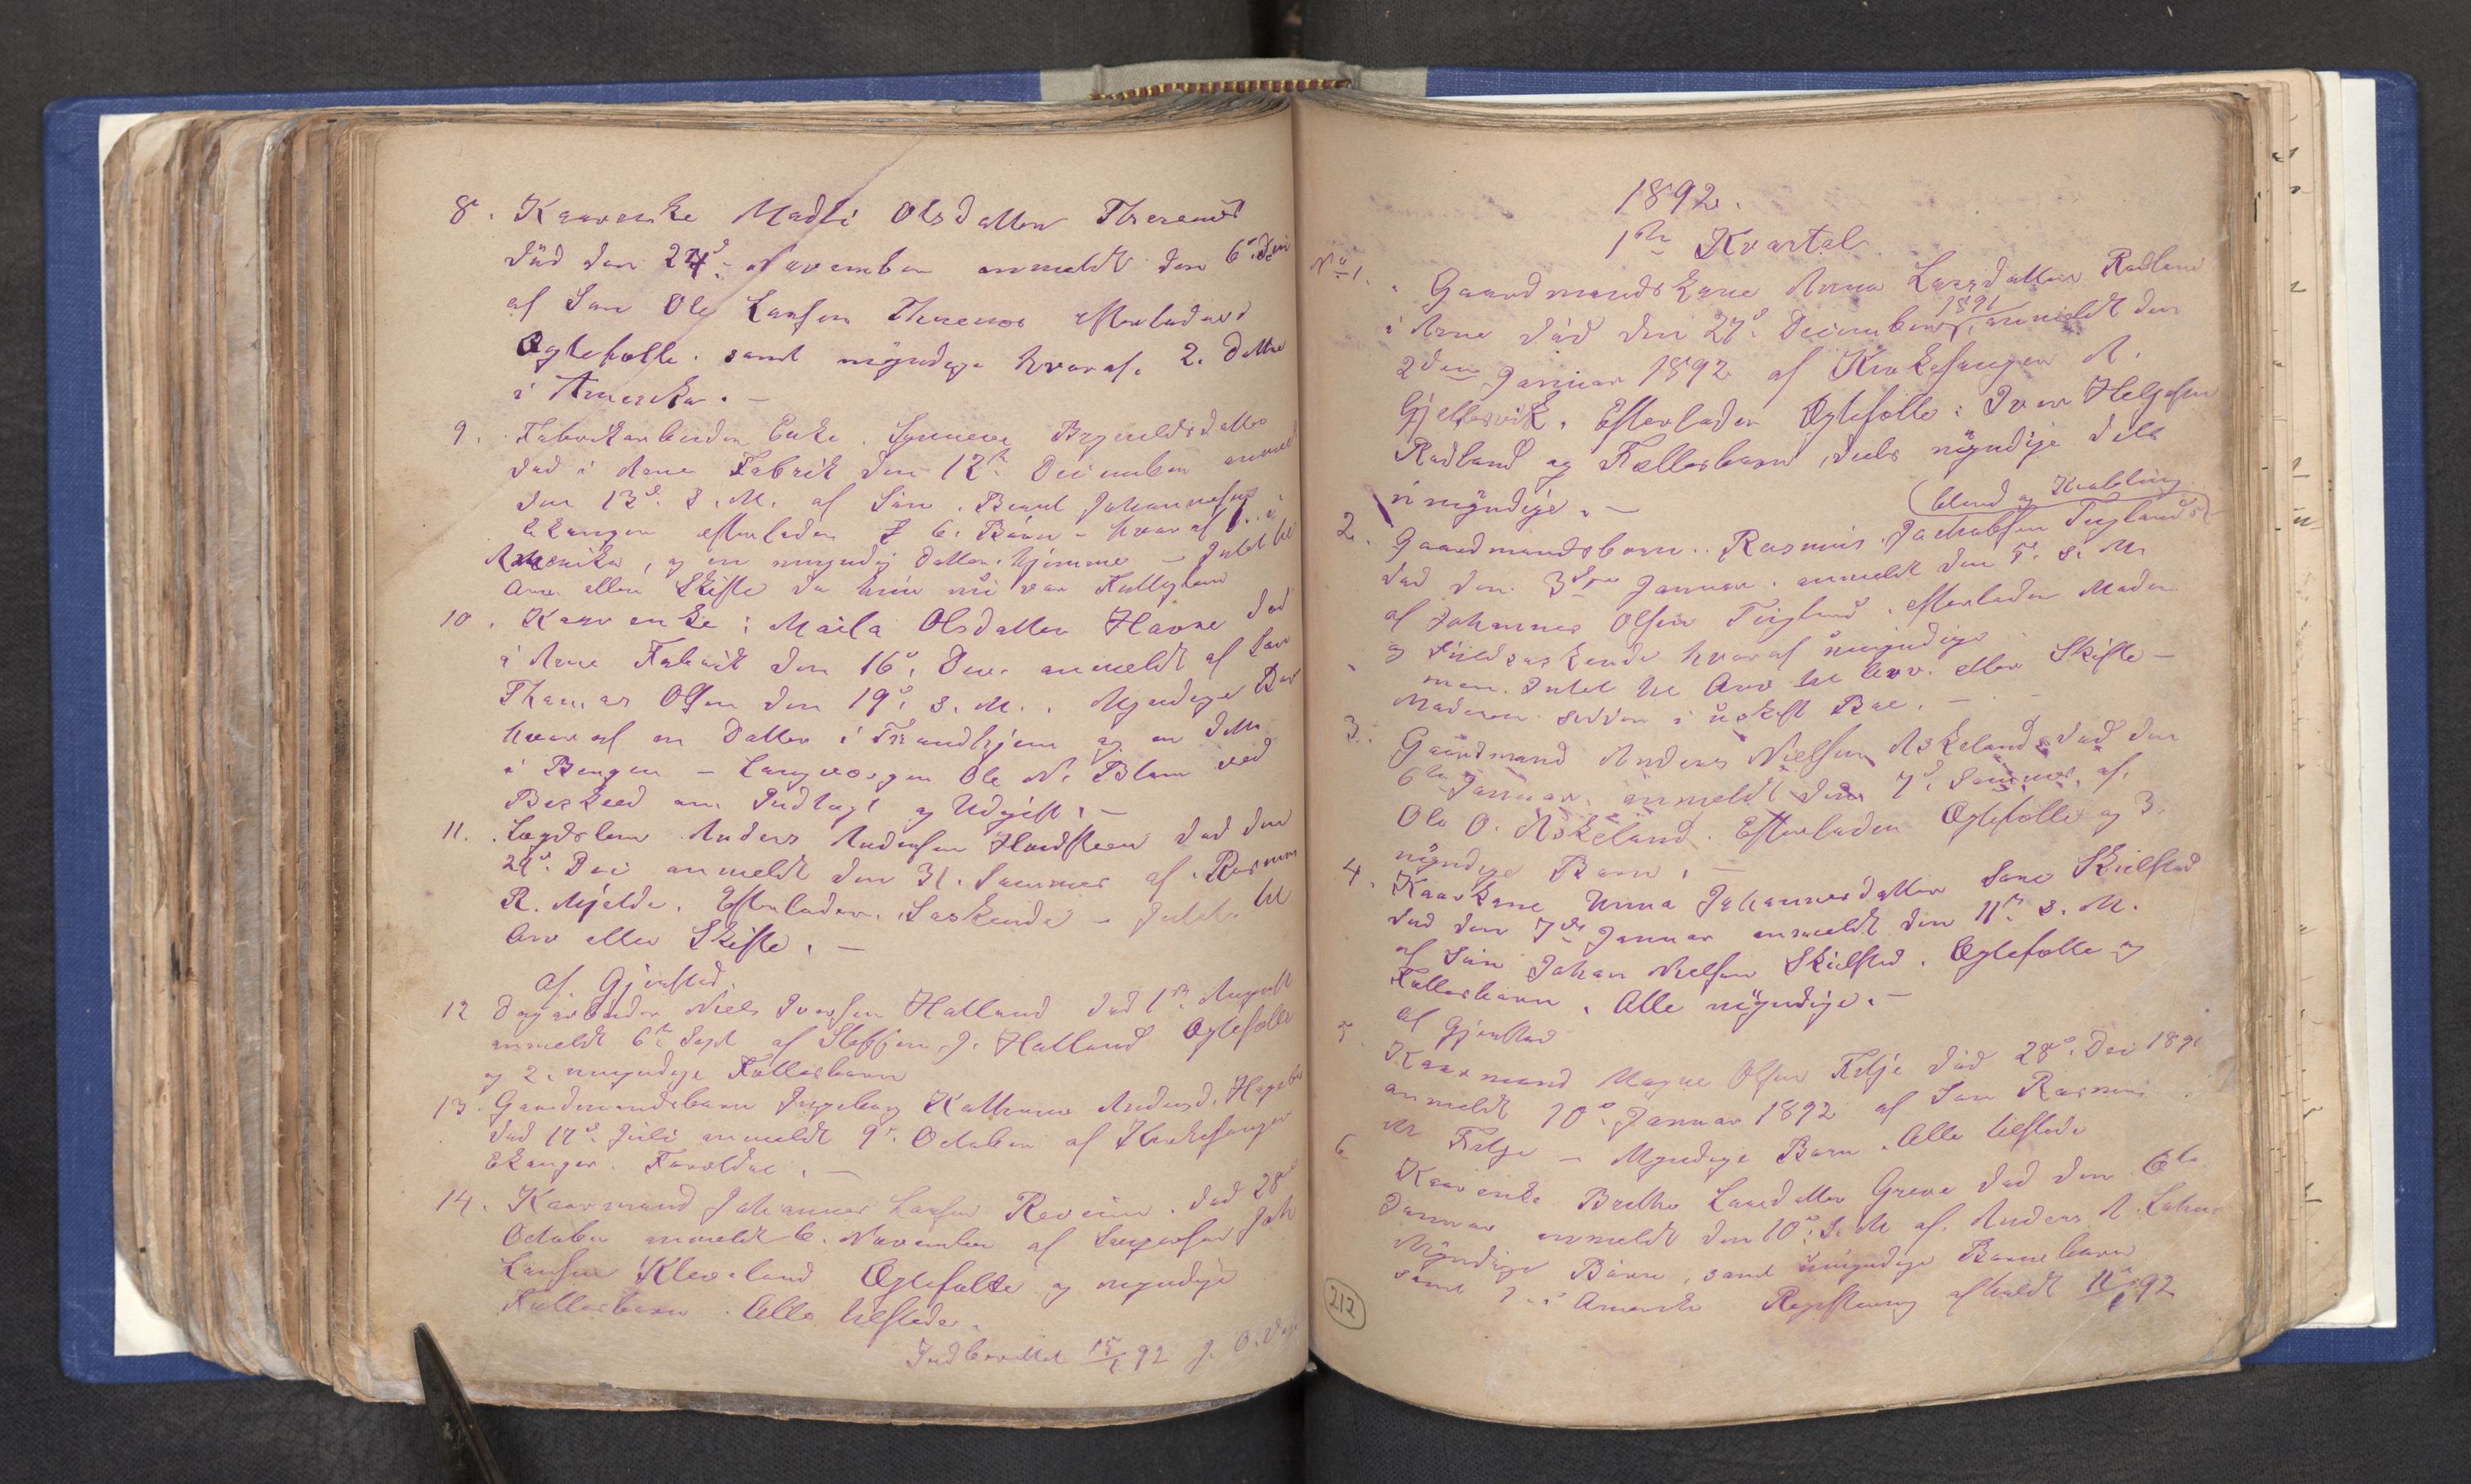 8. Kaarenke Madli Olsdatter Therenos
död den 24d November anmeldt den 6te
af Søn Ole Larsen Therenos efterladend
Ægtefælle. samt myndige hvoraf. 2. Døttre
i Amerika. —
9. Fabrikarbeider Enke. Synneve Brynildsdatter
död i Arne Fabrik den 12te December
den 13d s. M. af Sön. Bernt Johannesen
Ekangen efterlader 6. Börn - hvoraf 1. i
Amerika, og en myndig Datter hjemme — Intet til
Arv eller Skifte da hun nu var Fattiglem
10. Kaarenke: Marta Olsdatter Havre död
i Arne Fabrik den 16d. Dec. anmeldt af Søn
Thomas Olsen den 19d. s. M. . Myndige Bør
hvoraf en Datter i Trondhjem og en Datter
i Bergen —
Beskeed om Indtægt og Udgift. —
11. Lægdslem Anders Andersen Hundsteen död den
29d. Dec anmeldt den 31. Sammes af. Rasmus
R. Mjelde. Efterlader. Søskende — Intet. til
Arv eller Skifte. —
af Gjerstad.
12 Dagarbeider Niels Iversen Hatland död 1ste August
anmeldt 6te Sept af Steffen J. Hatland Ægtefælle
og 2. umyndige Fællesbørn
13. Gaardmandsbarn Ingeborg Kathrine Andersd.
död 17d. Juli anmeldt 9d. October af Kirkesanger
Ekanger. Forældre. —
14. Kaarmand Johannes Larsen Revheim. död 28de
October anmeldt 6. November af Svigersøn Joh
Larsen Kleveland Ægtefælle og myndige
Fællesbørn. Alle tilstede.
Indberettet 15/1 92 J. O.
1892.
1ste Kvartal
No 1. Gaardmandskone Anna Larsdatter Radland
i Arne död den 27d. December 1891, anmeldt den
2den Januar 1892 af Kirkesanger A.
Gjellesvik. Efterlader Ægtefælle: Iver Helgesen
Radland og Fællesbørn, deels myndige dels
umyndige. —
(blind og Krøbling)
2. Gaardmandsbarn. Rasmus. Jackobsen Tuglands
död den. 3die Januar. anmeldt den 5te s. M.
af Johannes Olsen Tugland. efterlader Moder
og Sødskende hvoraf umyndige
men. Intet til Arv til Arv. eller Skifte —
Moderen sidder i uskift Bo. —
3. Gaardmand Anders Nielsen Askeland död den
6te Januar. anmeldt den 7d. Sammes. af.
Ole O. Askeland. Efterlader Ægtefælle og 3.
myndige Børn. —
4. Kaarkone Anna Johannesdatter Søre Skulstad
död den 7de Januar anmeldt den 11te s. M.
af Sön Johan Nielsen Skulstad. Ægtefælle og
Fællesbørn. Alle myndige. —
af Gjerstad
5 Kaarmand Magne Olsen Fitje död 28d. Dec 1891
anmeldt 10d. Januar 1892 af Søn Rasmus
M Fitje — Myndige Børn. Alle tilstede
6 Kaarenke Brethe Larsdatter Greve död den 6te
Januar anmeldt den 10d. s. M af. Anders A.
Myndige Börn, samt umyndige Barnebørn
samt 1. i Amerika Registrering afholdt 11/1 92
212